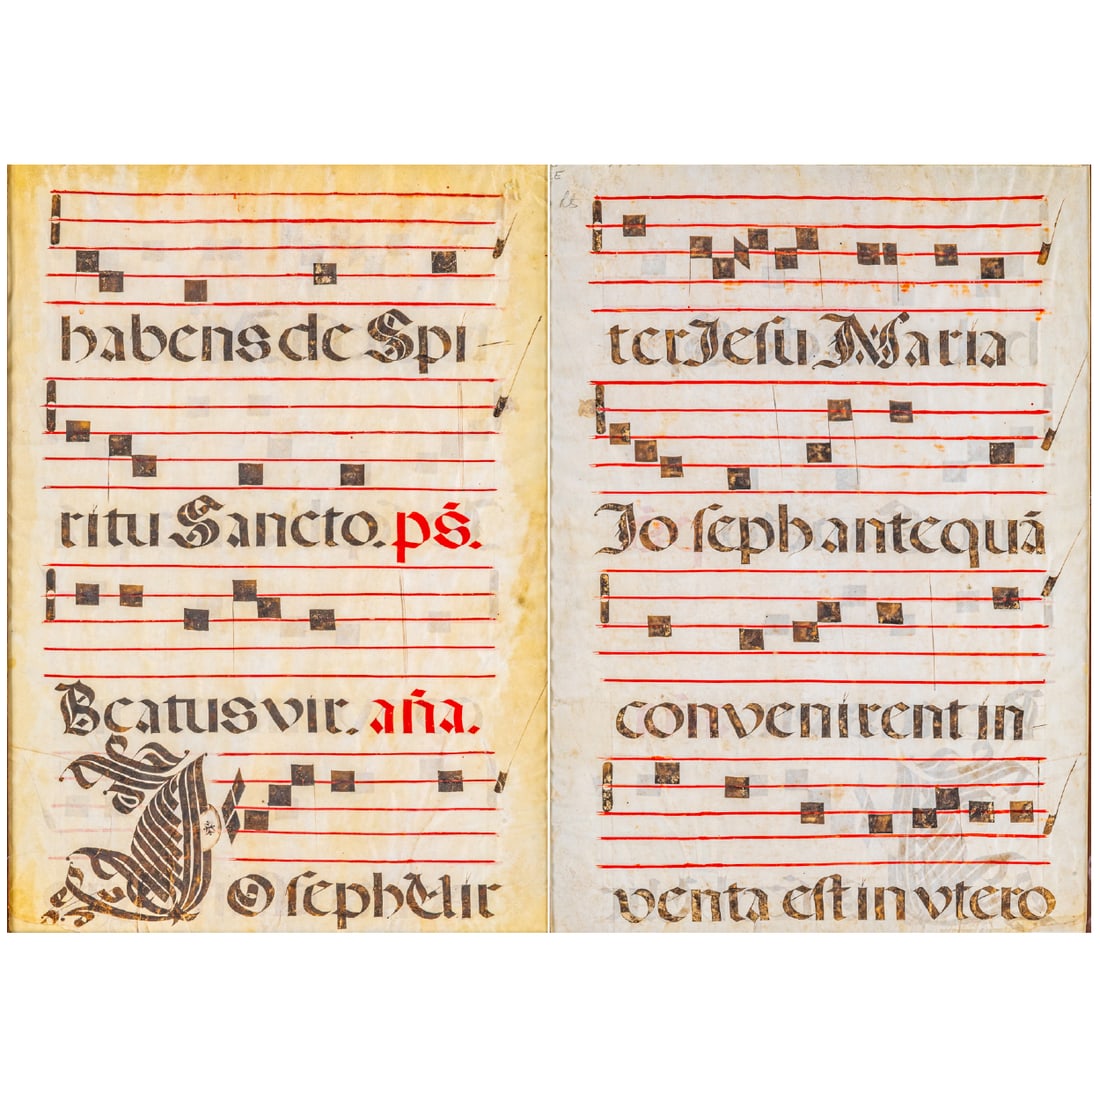 habens de Spi-
ritu Sancto. ps̃.
Beatus vir. aña.
Joseph Vir
ter Jesu Maria
Joseph antequã
convenirent in
venta est in vtero